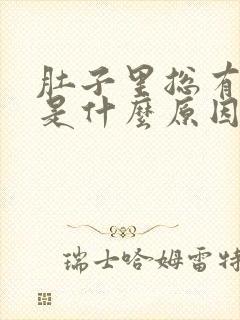 肚子里总有
是什麼原因
瑞士哈姆雷特